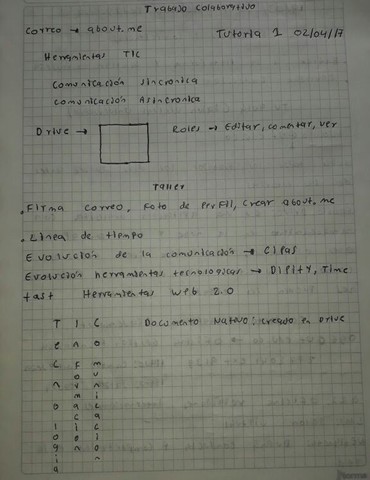 Trabajo Colaborativo
Correo → about.me
Tutoria 1 02/04/17
Herramientas TIC
Comunicación sincronica
Comunicación Asincronica
Drive → Roles → Editar, comentar, ver
Taller
. Firma correo, Foto de Perfil, Crear about.me
. Linea de tiempo
Evolución de la comunicación → Cipas
Evolución herramientas tecnologicas → Dipity, Time
tast Herramientas Web 2.0
TIC Documento Nativo: creado en Drive
Tecnologia
Información
Comunicación